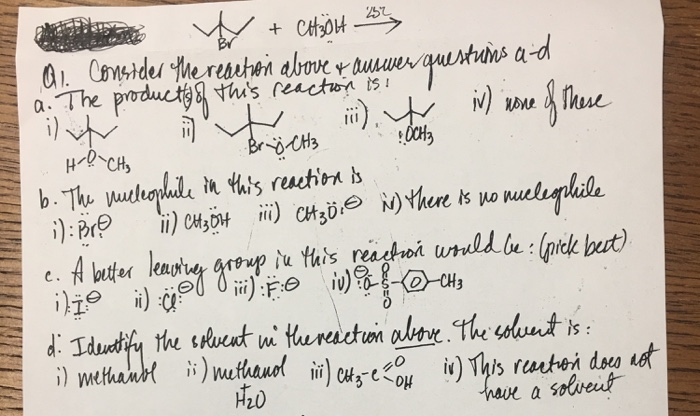 Br + CH3ÖH 25°
Q1. Consider the reaction above & answer questions a-d
a. The product(s) of this reaction is:
i) H-O-CH3 ii) Br-Ö-CH3 iii) :OCH3 iv) none of these
b. The nucleophile in this reaction is
i) :Br⊖ ii) CH3ÖH iii) CH3Ö:⊖ iv) there is no nucleophile
c. A better leaving group in this reaction would be: (pick best)
i) :I:⊖ ii) :Cl:⊖ iii) :F:⊖ iv) ⊖:O-S-CH3
O
O
d. Identify the solvent in the reaction above. The solvent is:
i) methanol ii) methanol + H2O iii) CH3-C=O OH iv) This reaction does not have a solvent